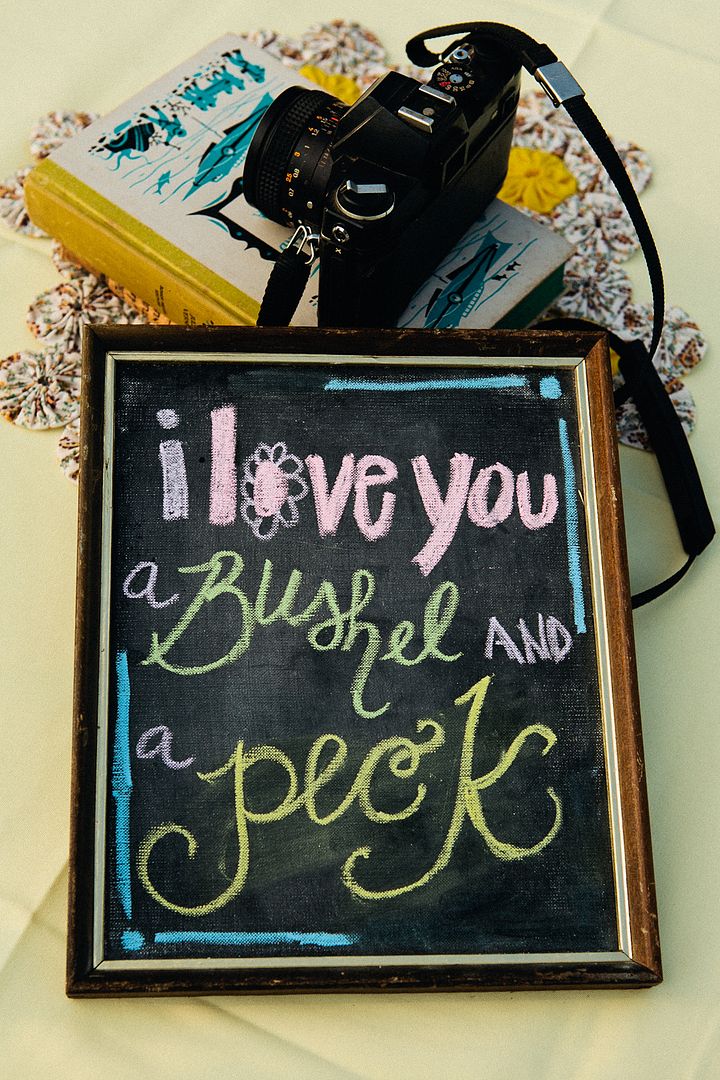 i love you
a Bushel AND
a peck